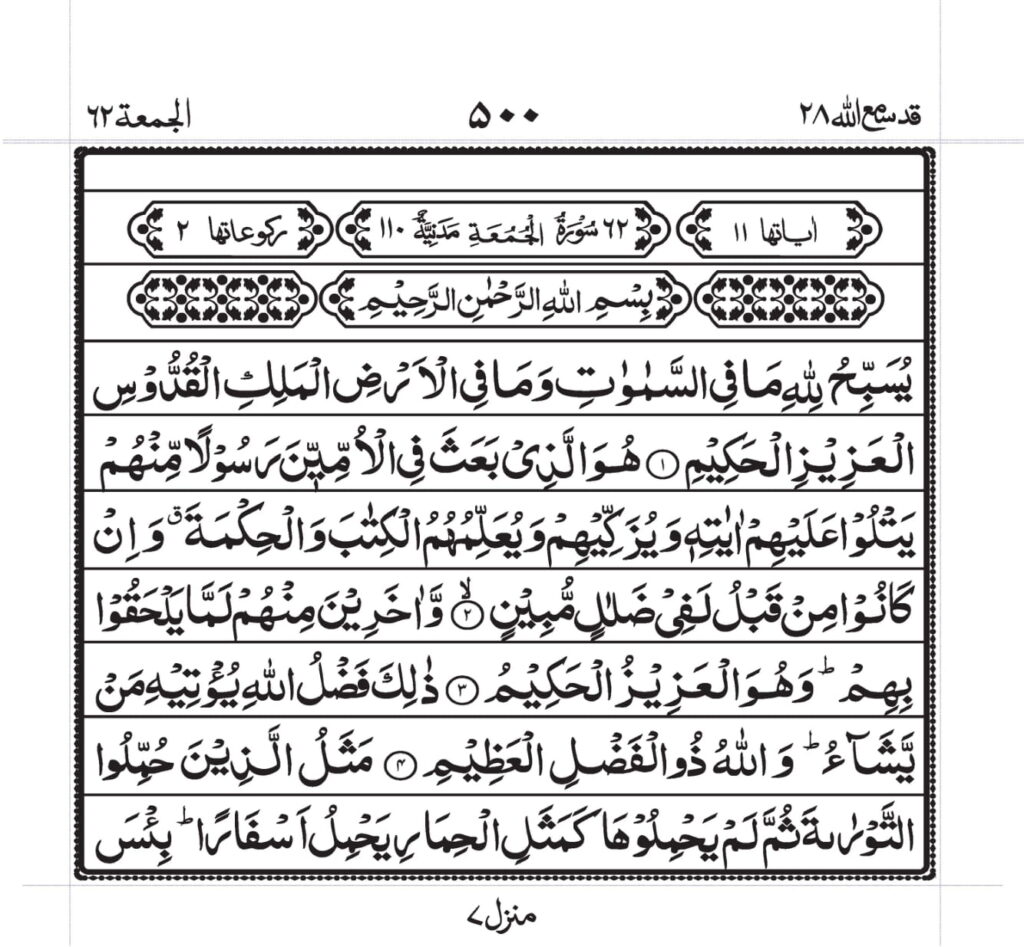 قد سمع الله ۲۸ ۵۰۰ الجمعة ۶۲
اياتها ۱۱ ۶۲ سُوْرَةُ الْجُمُعَةِ مَدَنِيَّةٌ ۱۱۰ ركوعاتها ۲
بِسْمِ اللّٰهِ الرَّحْمٰنِ الرَّحِيْمِ
يُسَبِّحُ لِلّٰهِ مَا فِي السَّمٰوٰتِ وَمَا فِي الْاَرْضِ الْمَلِكِ الْقُدُّوْسِ
الْعَزِيْزِ الْحَكِيْمِ ۱ هُوَ الَّذِيْ بَعَثَ فِي الْاُمِّيّٖنَ رَسُوْلًا مِّنْهُمْ
يَتْلُوْا عَلَيْهِمْ اٰيٰتِهٖ وَيُزَكِّيْهِمْ وَيُعَلِّمُهُمُ الْكِتٰبَ وَالْحِكْمَةَ ۗق وَاِنْ
كَانُوْا مِنْ قَبْلُ لَفِيْ ضَلٰلٍ مُّبِيْنٍ ۲ۙ وَّاٰخَرِيْنَ مِنْهُمْ لَمَّا يَلْحَقُوْا
بِهِمْ ؕ وَهُوَ الْعَزِيْزُ الْحَكِيْمُ ۳ ذٰلِكَ فَضْلُ اللّٰهِ يُؤْتِيْهِ مَنْ
يَّشَآءُ ؕ وَاللّٰهُ ذُو الْفَضْلِ الْعَظِيْمِ ۴ مَثَلُ الَّذِيْنَ حُمِّلُوا
التَّوْرٰىةَ ثُمَّ لَمْ يَحْمِلُوْهَا كَمَثَلِ الْحِمَارِ يَحْمِلُ اَسْفَارًا ؕ بِئْسَ
منزل ۷